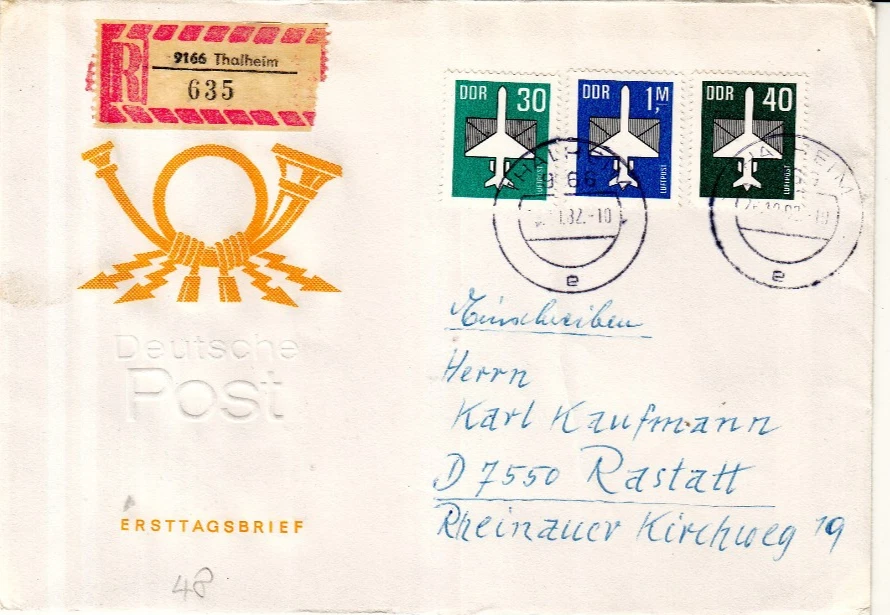 R
9166 Thalheim
635
DDR 30
LUFTPOST
DDR 1,M
LUFTPOST
DDR 40
LUFTPOST
THALHEIM
9166
.82.-10
e
THALHEIM
.82.-10
e
Deutsche
Post
Einschreiben
Herrn
Karl Kaufmann
D 7550 Rastatt
Rheinauer Kirchweg 19
ERSTTAGSBRIEF
48